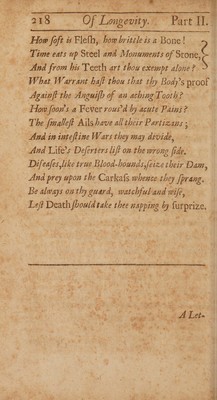 218 Of Longevity. Part II.
How ſoft is Fleſh, how brittle is a Bone!
Time eats up Steel and Monuments of Stone,
And from his Teeth art thou exempt alone?
What Warant haſt thou that thy Body's proof
Againſt the Anguiſh of an aching Tooth?
How ſoon's a Fever rous'd by acute Pains?
The ſmalleſt Ails have all their Partizans;
And in inteſtine Wars they may divide,
And Life's Deſerters liſt on the wrong ſide.
Diſeaſes, like true Blood-hounds, ſeize their Dam,
And prey upon the Carkaſs whence they ſprang.
Be always on thy guard, watchful and wiſe,
Leſt Death ſhould take thee napping by ſurprize.
A Let-